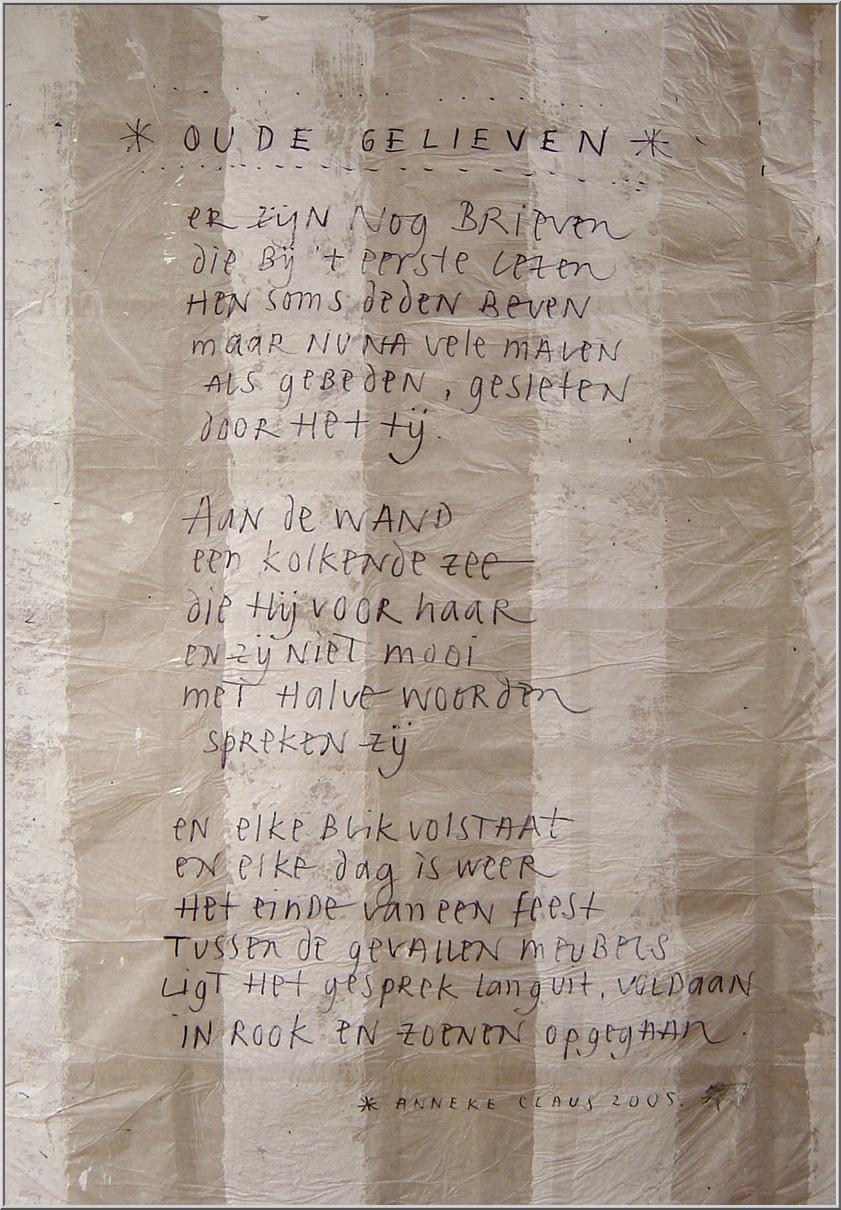 * OUDE GELIEVEN *
er zijn nog brieven
die bij 't eerste lezen
hen soms deden beven
maar nu na vele malen
als gebeden, gesleten
door het tij.
Aan de wand
een kolkende zee
die hij voor haar
en zij niet mooi
met halve woorden
spreken zij
en elke blik volstaat
en elke dag is weer
het einde van een feest
tussen de gevallen meubels
ligt het gesprek languit, voldaan
in rook en zoenen opgegaan.
* ANNEKE CLAUS 2005. *